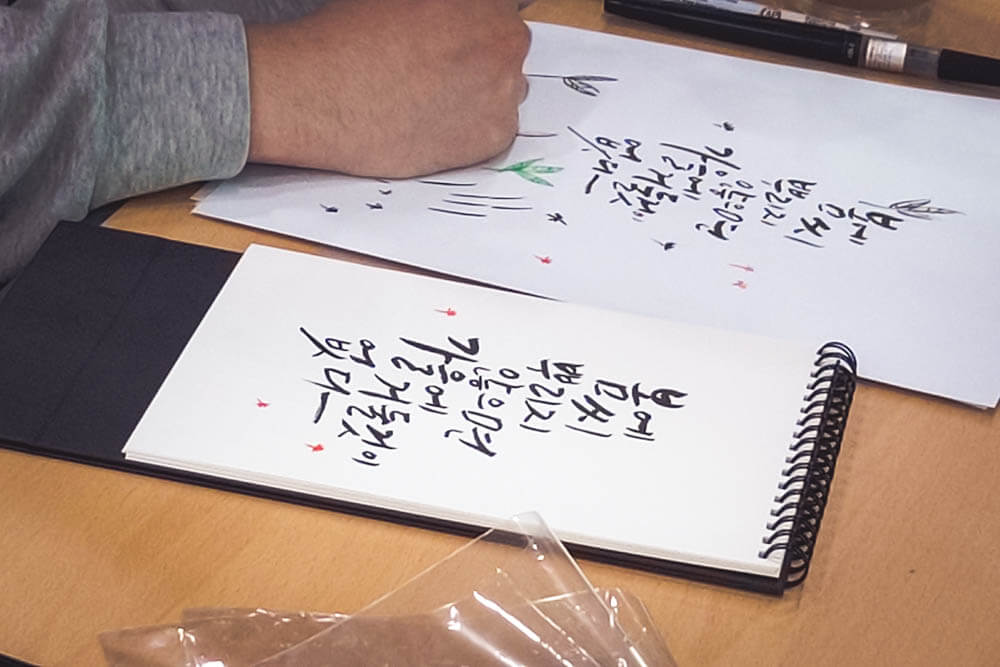 봄에
씨
뿌리지
않으면
가을에
거둘것이
없다
봄에
씨
뿌리지
않으면
가을에
거둘것이
없다